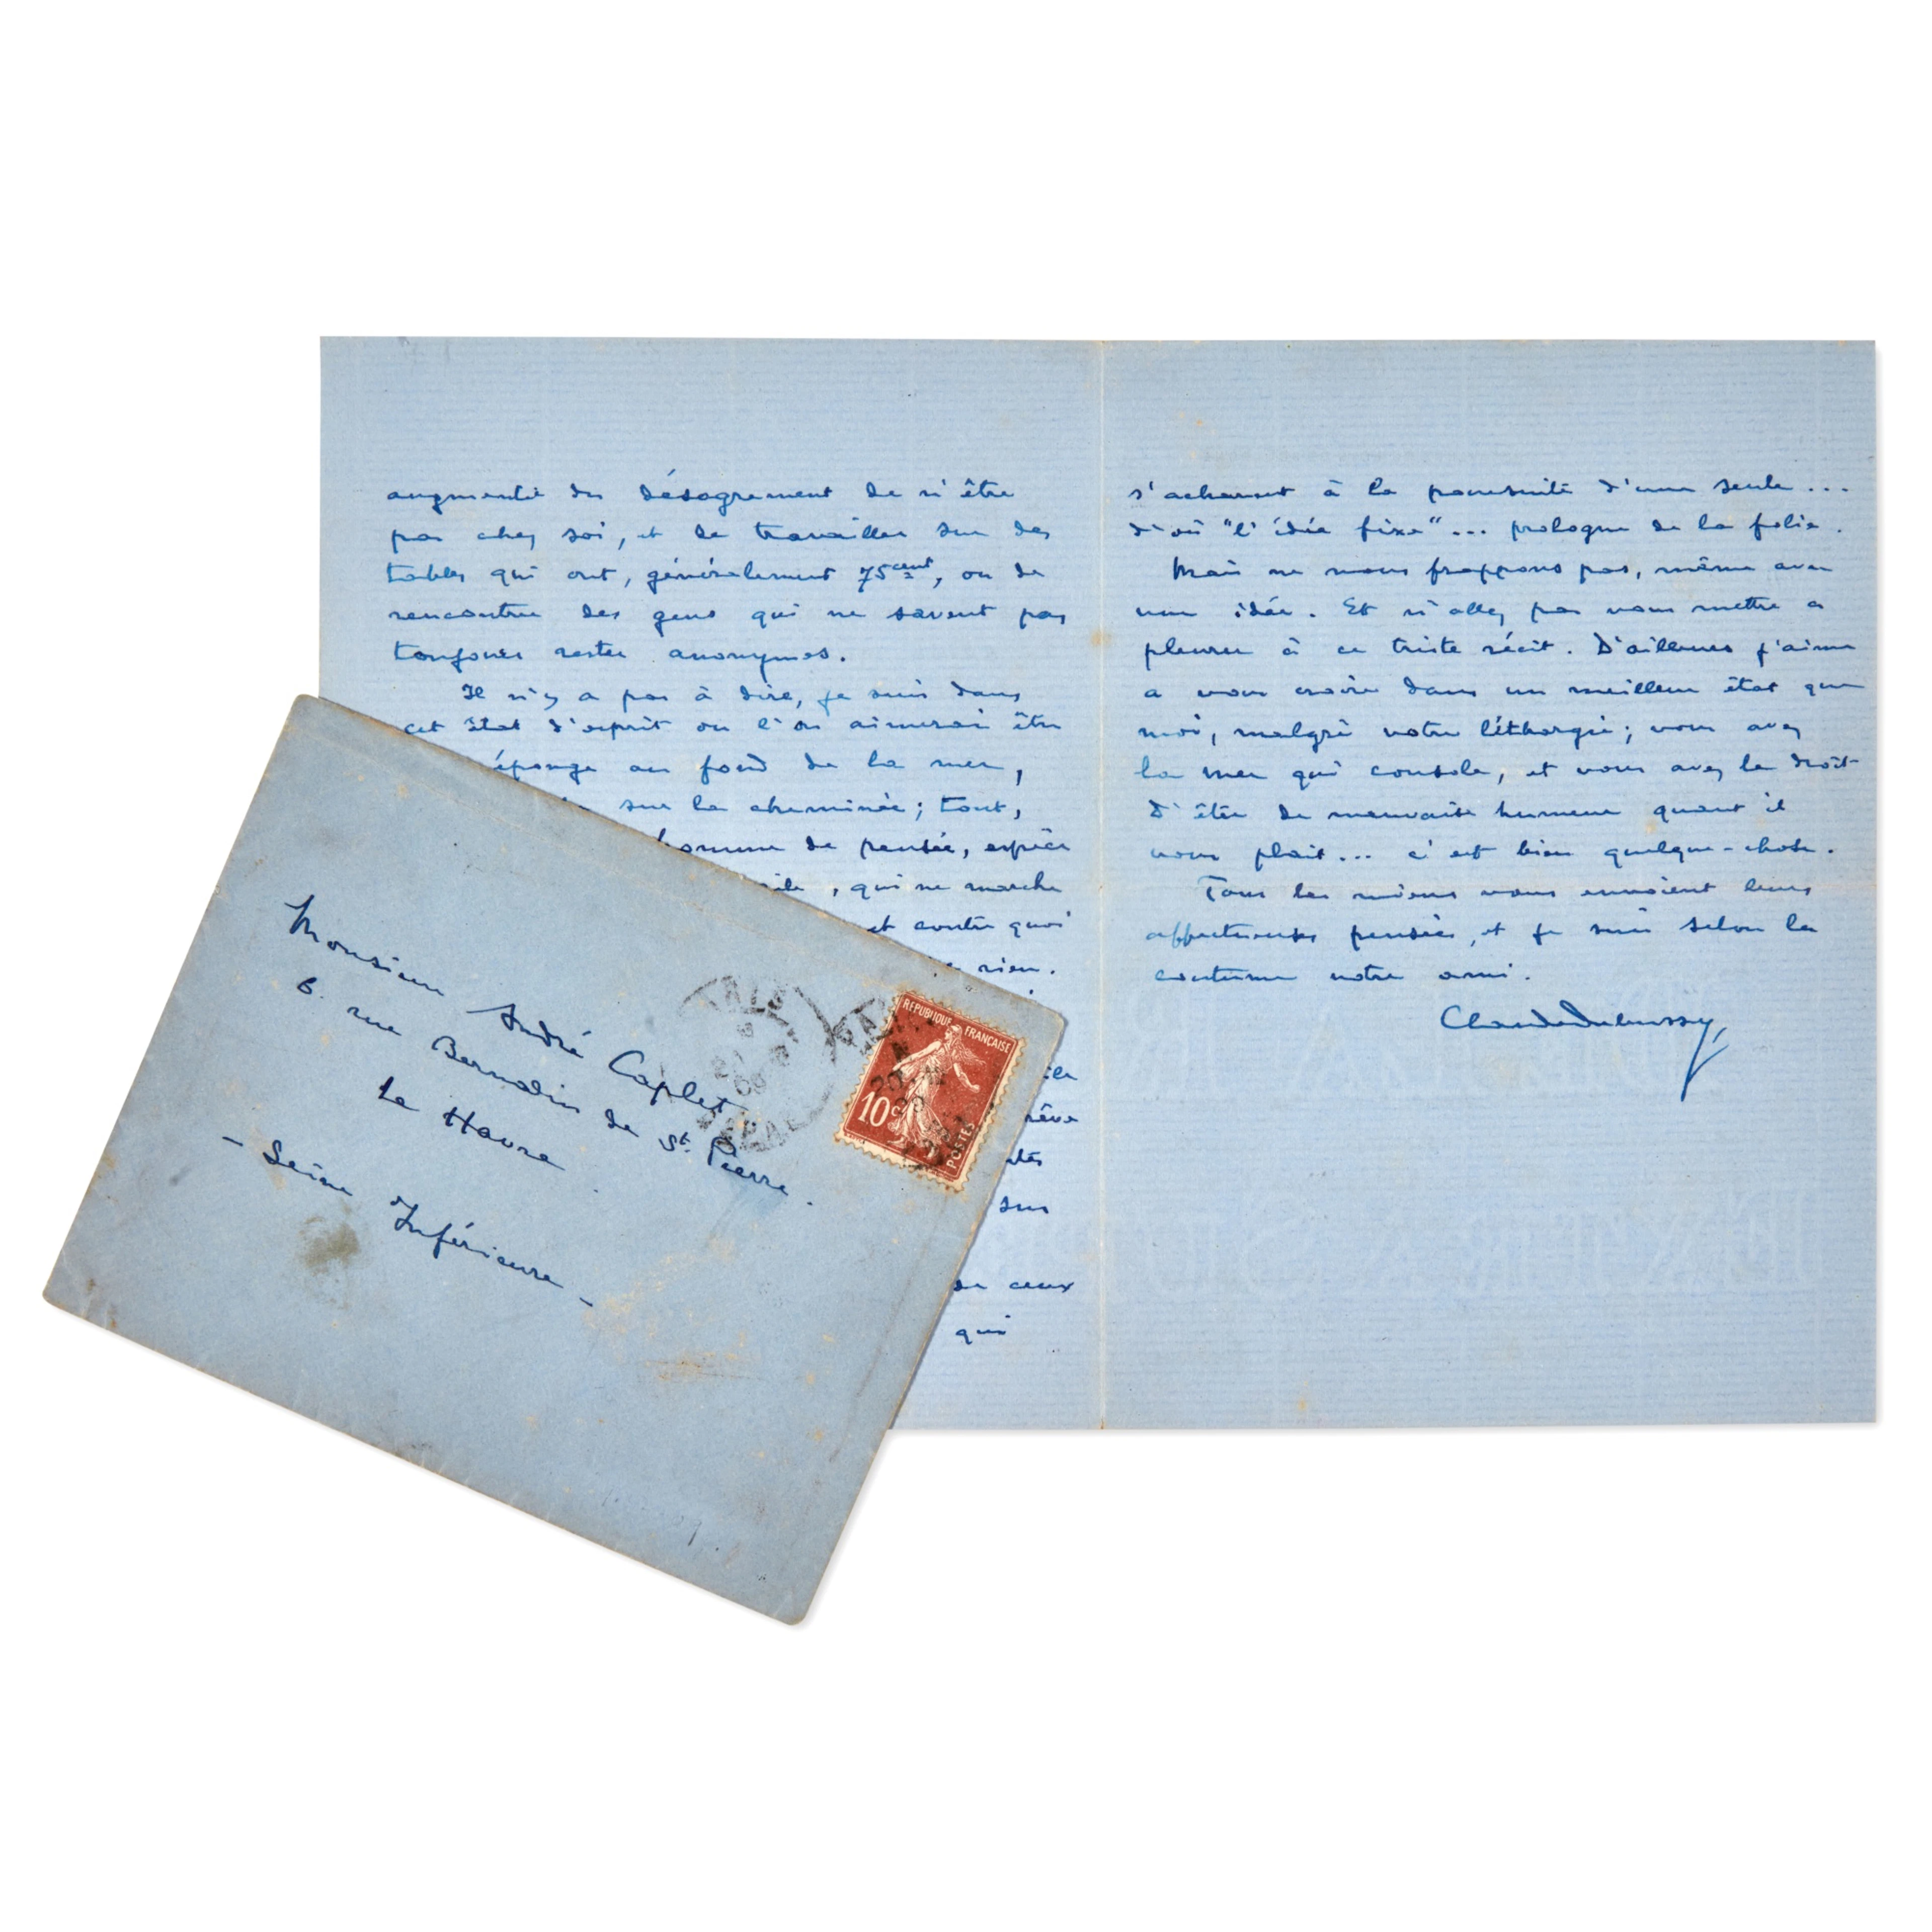 augmenté du désagrément de n'être
pas chez soi, et de travailler sur des
tables qui ont, généralement 75cent, ou de
rencontrer des gens qui ne savent pas
toujours rester anonymes.
Il n'y a pas à dire, je suis dans
cet état d'esprit ou l'on aimerai être
éponge au fond de la mer,
sur la cheminée; tout,
homme de pensée, espèce
, qui ne marche
et contre quoi
rien.
rêve
sur
de ceux
qui
s'acharnent à la poursuite d'une seule...
d'où "l'idée fixe"... prologue de la folie.
Mais ne nous frappons pas, même avec
une idée. Et n'allez pas vous mettre a
pleurer à ce triste récit. D'ailleurs j'aime
a vous croire dans un meilleur état que
moi, malgré votre léthargie; vous avez
la mer qui console, et vous avez le droit
d'être de mauvaise humeur quant il
vous plait... c'est bien quelque-chose.
Tous les miens vous envoient leurs
affectueuses pensées, et je suis selon la
coutume votre ami.
Claude Debussy
Monsieur André Caplet
6. rue Bernardin de St. Pierre.
Le Havre
- Seine Inférieure -
REPUBLIQUE FRANÇAISE
10c
POSTES